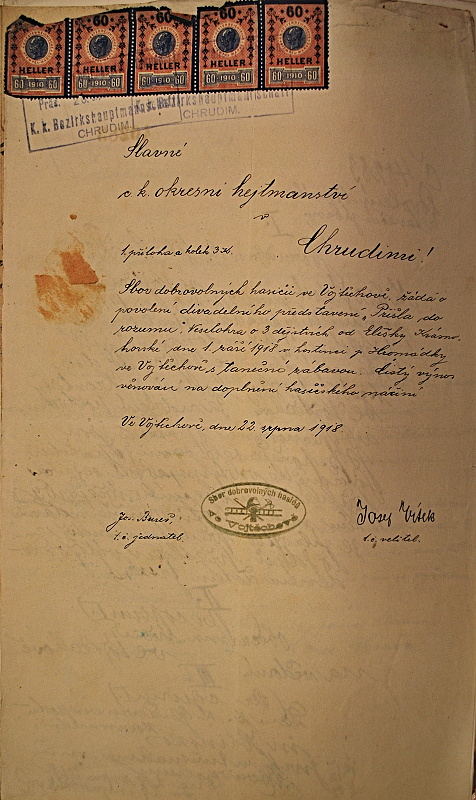 60 60 60 60 60
HELLER HELLER HELLER HELLER HELLER
60 1910 60 60 1910 60 60 1910 60 60 1910 60 60 1910 60
Präs.
K. k. Bezirkshauptmannschaft
CHRUDIM. CHRUDIM.
Slavné
c. k. okresní hejtmanství
v
Chrudimi!
1 příloha a kolek 3 K.
Sbor dobrovolných hasičů ve Vojtěchově, žádá o
povolení divadelního představení „Přišla do
rozumu“. Veselohra o 3 dějstvích od Elišky Krásno-
horské dne 1. září 1918 v hostinci p. Hromádky
ve Vojtěchově s taneční zábavou. Čistý výnos
věnován na doplnění hasičského nářadí.
Ve Vojtěchově, dne 22. srpna 1918.
Sbor dobrovolných hasičů
ve Vojtěchově
Jos. Bureš, Josef Vítek
t. č. jednatel. t. č. velitel.